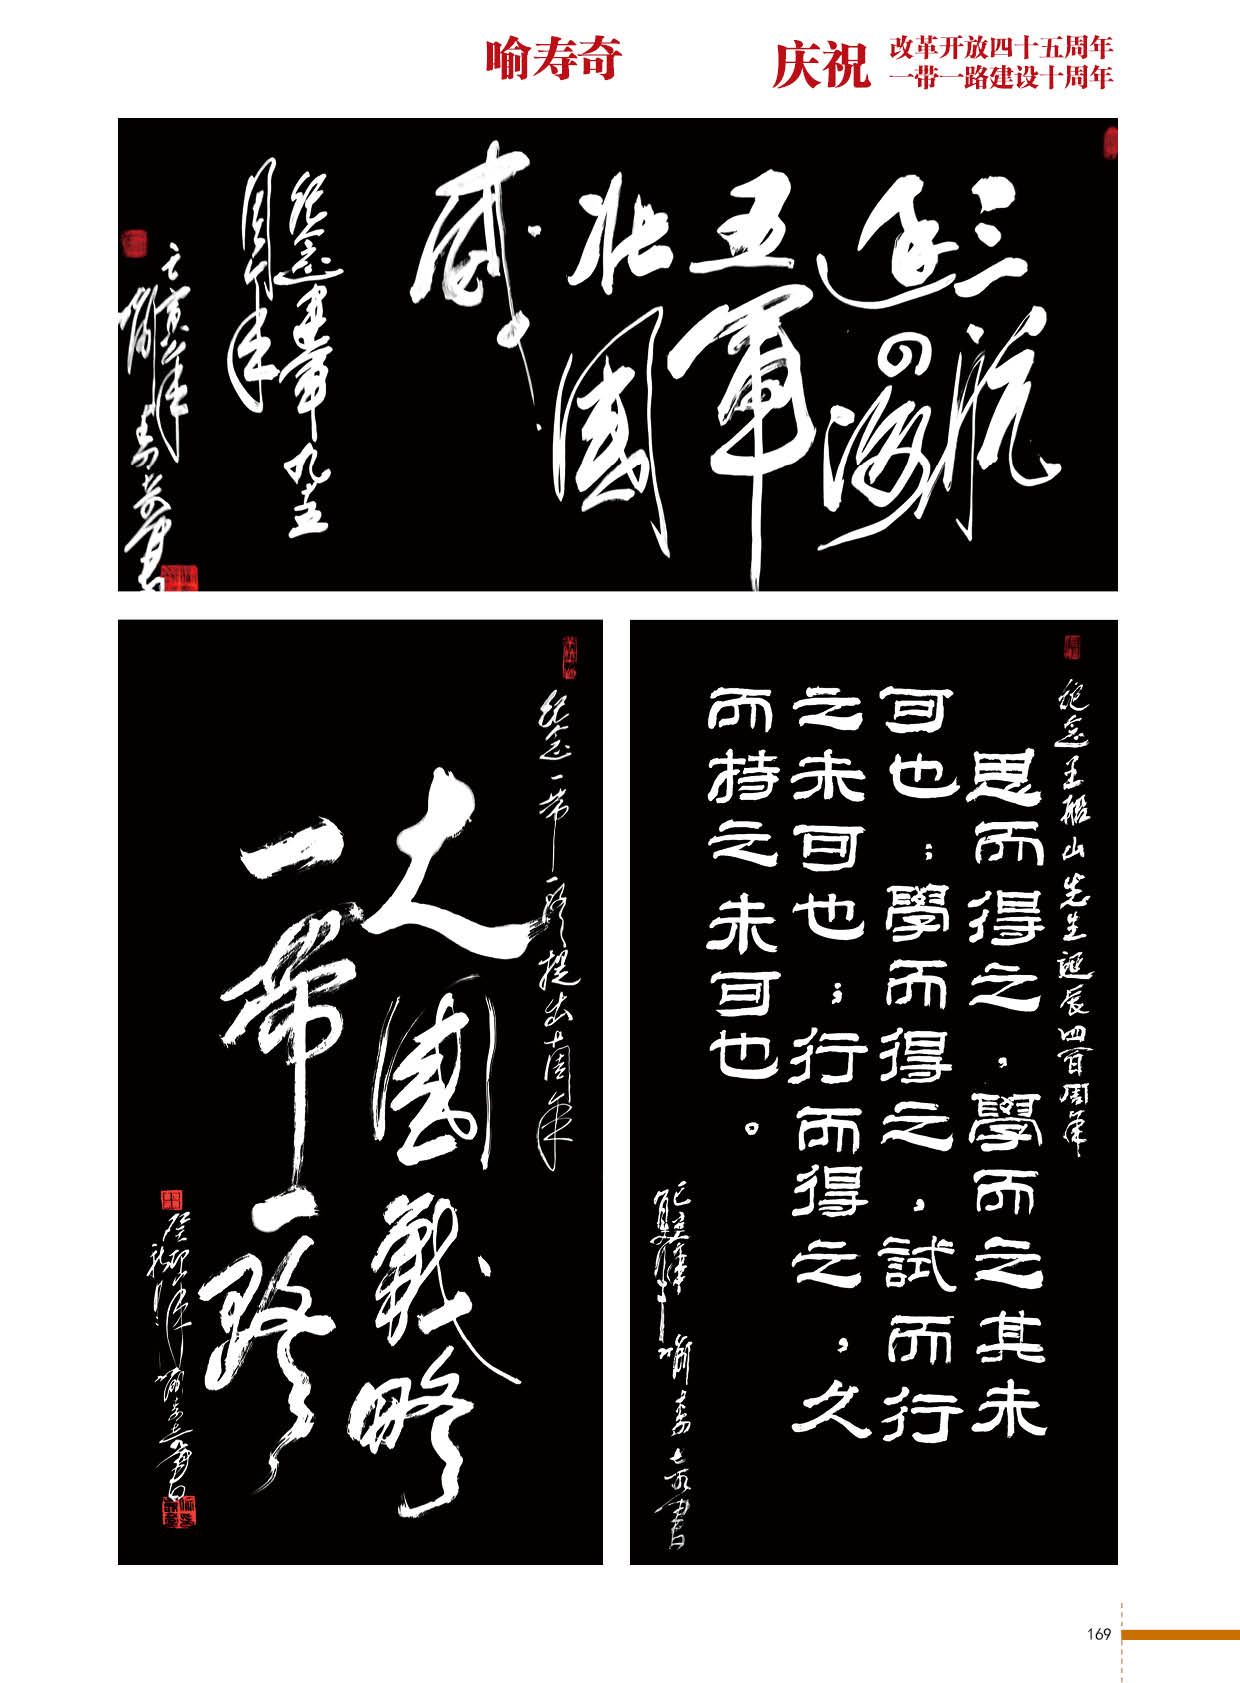 喻寿奇
庆祝
改革开放四十五周年
一带一路建设十周年
三航
五軍
壮國
威
紀念建軍九十五
周年
壬寅年
喻寿奇書
紀念一帶一路提出十周年
大國戰略
一帶一路
癸卯年
喻寿奇書
紀念王船山先生誕辰四百周年
思而得之，學而之其未
可也；學而得之，試而行
之未可也；行而得之，久
而持之未可也。
己亥年
喻寿奇書
169